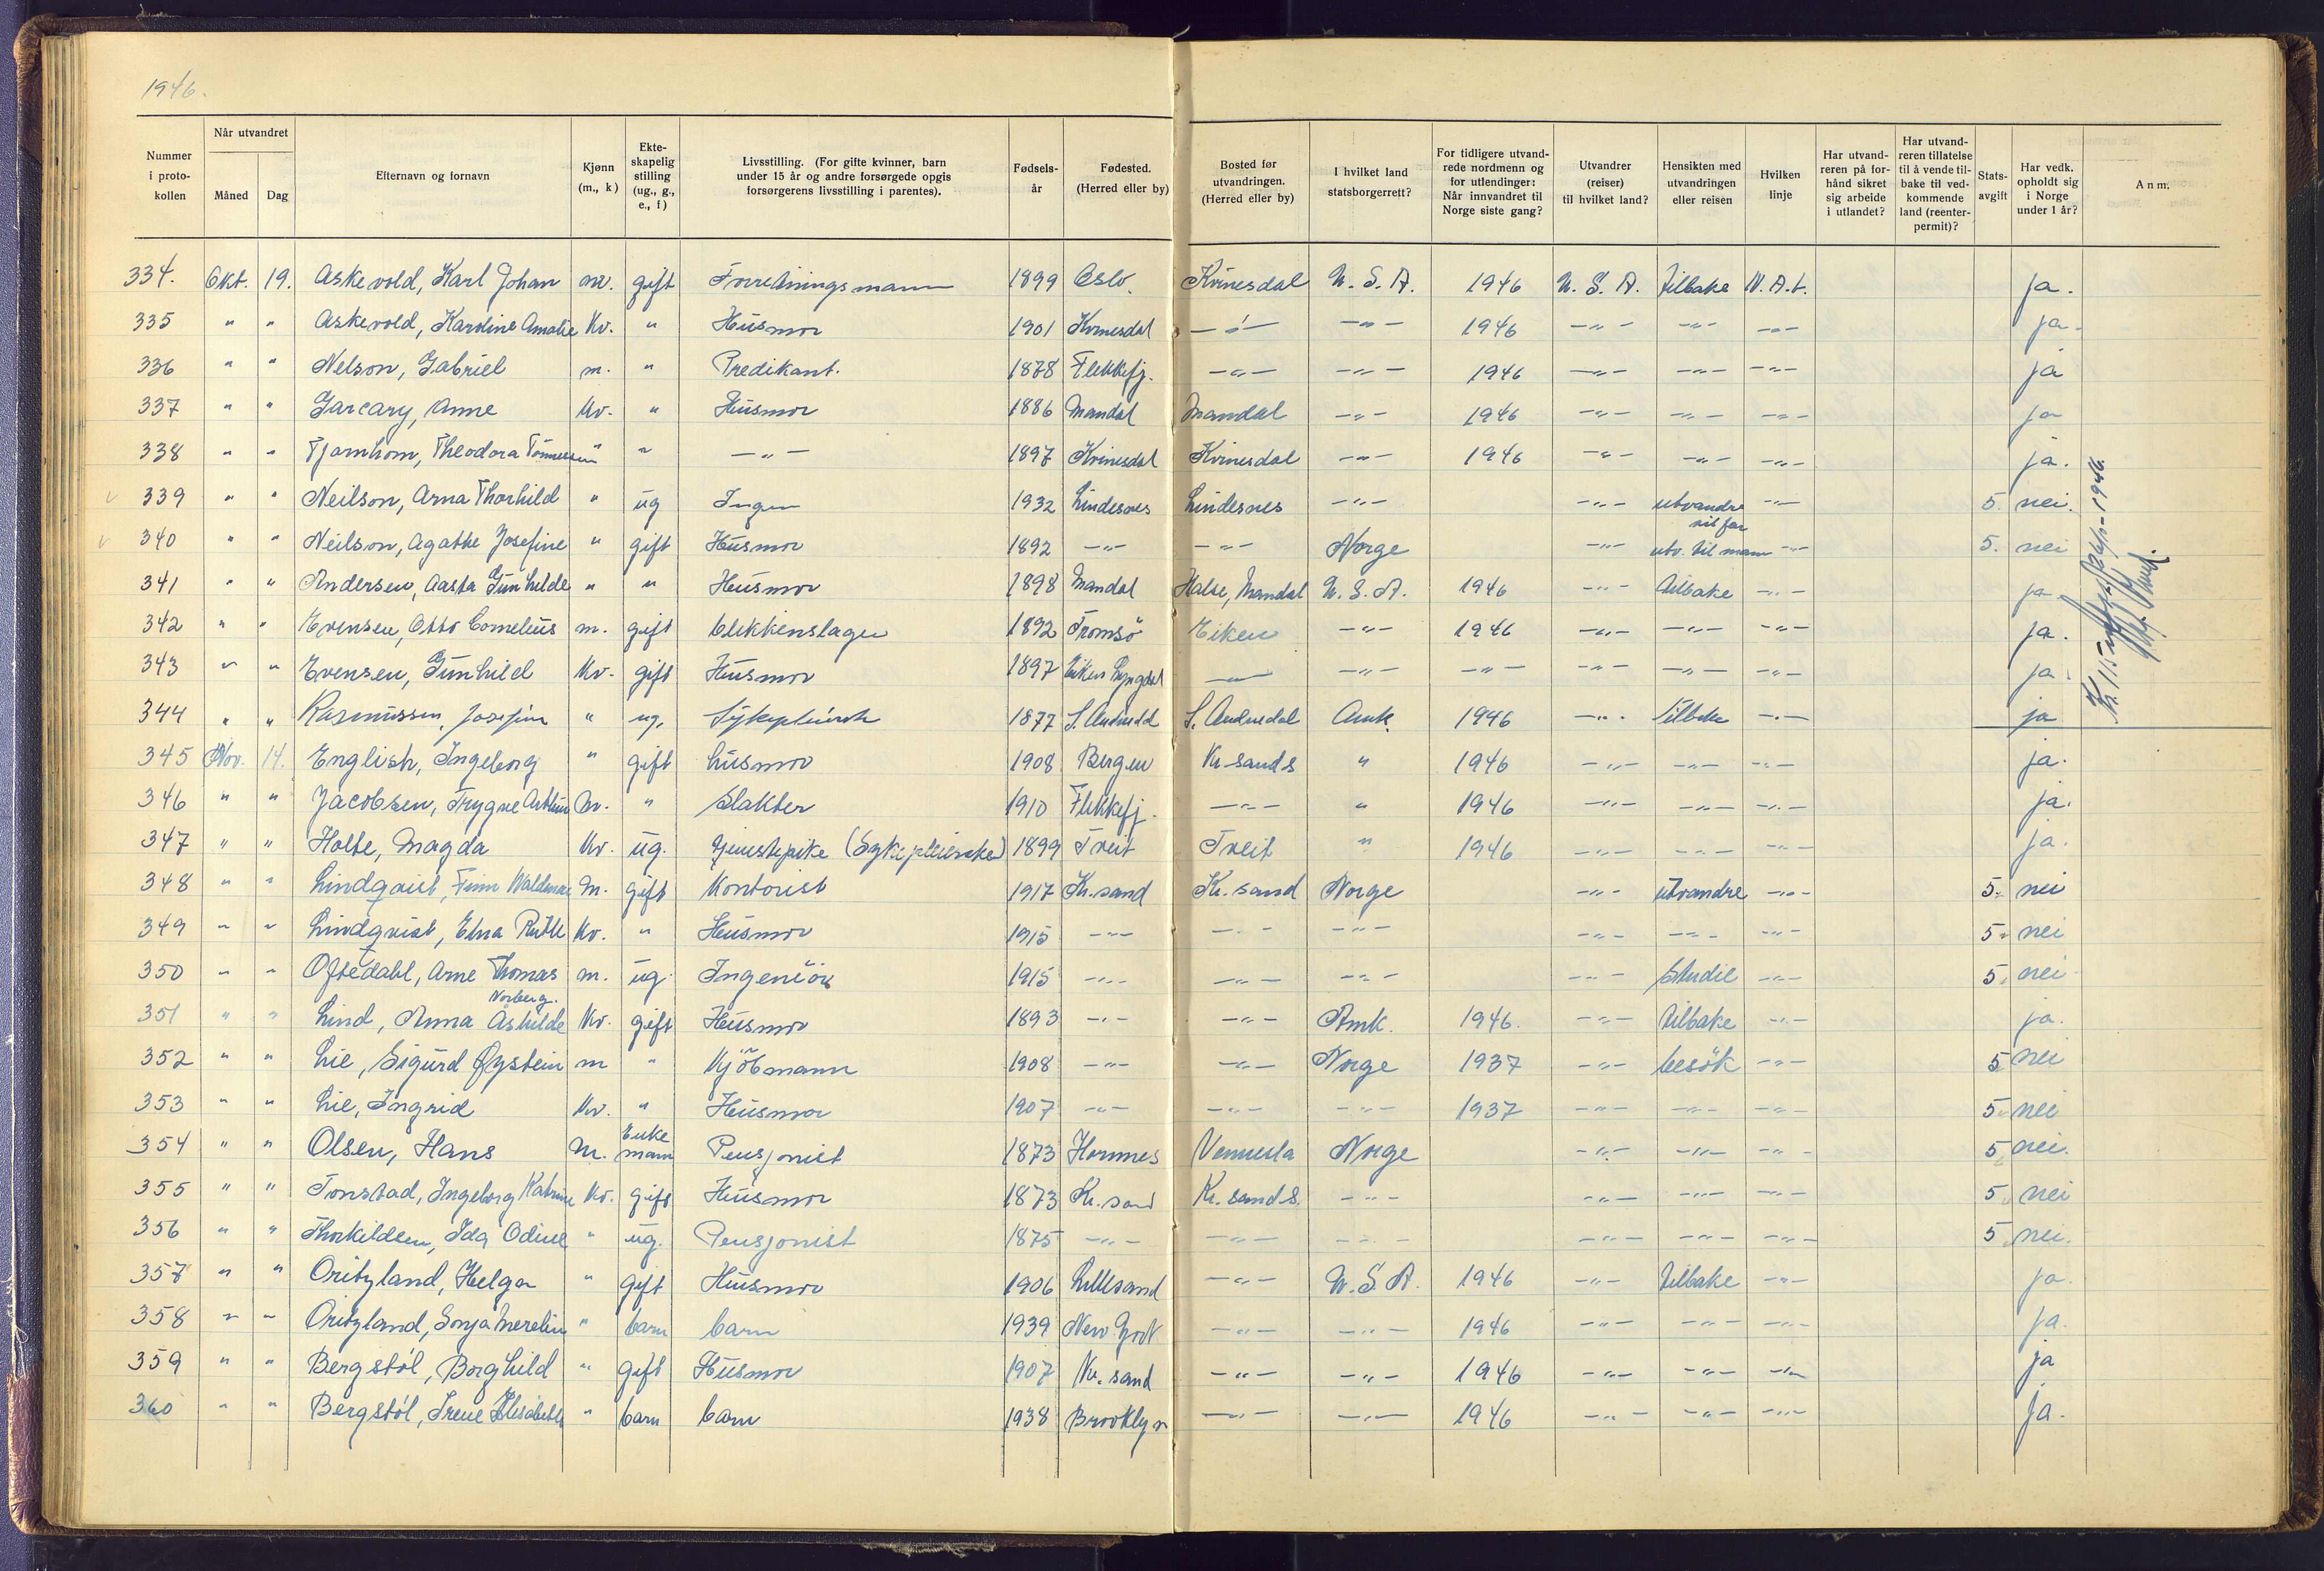 1946.
Nummer i protokollen | Når utvandret Måned | Dag | Efternavn og fornavn | Kjønn (m., k) | Ekteskapelig stilling (ug., g., e., f) | Livsstilling. (For gifte kvinner, barn under 15 år og andre forsørgede opgis forsørgerens livsstilling i parentes). | Fødselsår | Fødested. (Herred eller by) | Bosted før utvandringen. (Herred eller by) | I hvilket land statsborgerrett? | For tidligere utvandrede nordmenn og for utlendinger: Når innvandret til Norge siste gang? | Utvandrer (reiser) til hvilket land? | Hensikten med utvandringen eller reisen | Hvilken linje | Har utvandreren på forhånd sikret sig arbeide i utlandet? | Har utvandreren tillatelse til å vende tilbake til vedkommende land (reenterpermit)? | Statsavgift | Har vedk. opholdt sig i Norge under 1 år? | Anm.
334. Okt. 19. Askevold, Karl Johan m. gift Forretningsmann 1899 Oslo. Kvinesdal U.S.A. 1946 U.S.A. tilbake N.A.L. ja.
335 " " Askevold, Karoline Amalie kv. " Husmor 1901 Kvinesdal -"- -"- 1946 -"- -"- -"- ja.
336 " " Nelson, Gabriel m. " Predikant. 1878 Flekkefj. -"- -"- 1946 -"- -"- -"- ja
337 " " Garcary, Anne kv. " Husmor 1886 Mandal Mandal -"- 1946 -"- -"- -"- ja
338 " " Tjomhom, Theodora " " -"- 1897 Kvinesdal Kvinesdal -"- 1946 -"- -"- -"- ja.
339 " " Neilson, Arna Thorhild " ug Ingen 1932 Lindesnes Lindesnes -"- -"- utvandre til far -"- 5. nei.
340 " " Neilson, Agathe Josefine " gift Husmor 1892 -"- -"- Norge -"- utv. til mann -"- 5. nei
341 " " Andersen, Aasta Gunhilde " " Husmor 1898 Mandal Halse, Mandal U.S.A. 1946 -"- tilbake -"- ja.
342 " " Evensen, Otto Cornelius m. gift blikkenslager 1892 Tromsö Eiken -"- 1946 -"- -"- -"- ja.
343 " " Evensen, Gunhild kv. gift Husmor 1897 Eiken Lyngdal -"- -"- -"- -"- -"- -"- ja.
344 " " Rasmussen, Josefine " ug. Sykepleierske 1877 S. Audnedal S. Audnedal Amk. 1946 -"- tilbake -"- ja
345 Nov. 14. English, Ingeborg " gift husmor 1908 Bergen Kr.sand s " 1946 -"- -"- -"- ja.
346 " " Jacobsen, Trygve Arthur m. " Slakter 1910 Flekkefj. -"- " 1946 -"- -"- -"- ja.
347 " " Holte, Magda kv. ug. tjenestepike (Sykepleierske) 1899 Tveit Tveit " 1946 -"- -"- -"- ja.
348 " " Lindqvist, Finn Waldemar m. gift Kontorist 1917 Kr.sand Kr.sand Norge -"- utvandre -"- 5. nei
349 " " Lindqvist, Elna Ruth kv. " Husmor 1915 -"- -"- -"- -"- -"- -"- 5. nei
350 " " Oftedahl, Arne Thomas m. ug. Ingeniör 1915 -"- -"- -"- -"- studie -"- 5. nei.
351 " " Lind, Anna Åshilde Norberg. kv. gift Husmor 1893 -"- -"- Amk. 1946. -"- tilbake -"- ja.
352 " " Lie, Sigurd Øystein m " Kjöbmann 1908 -"- -"- Norge 1937 -"- besök -"- 5. nei
353 " " Lie, Ingrid kv. " Husmor 1907 -"- -"- -"- 1937 -"- -"- -"- 5. nei
354 " " Olsen, Hans m. Enkemann Pensjonist 1873 Hornnes Vennesla Norge -"- -"- -"- 5. nei.
355 " " Tonstad, Ingeborg Katrine kv. gift Husmor 1873 Kr.sand Kr.sand s. -"- -"- -"- -"- 5. nei
356 " " Thorkildsen, Ida Odine " ug. Pensjonist 1875 -"- -"- -"- -"- -"- -"- 5. nei.
357 " " Oritzland, Helga " gift Husmor 1906 Lillesand -"- U.S.A. 1946 -"- tilbake -"- ja.
358 " " Oritzland, Sonja Merelin " barn barn 1939 New York -"- -"- 1946 -"- -"- -"- ja.
359 " " Bergstöl, Borghild " gift Husmor 1907 Kr.sand -"- -"- 1946 -"- -"- -"- ja
360 " " Bergstöl, Irene Elisabeth " barn barn 1938 Brooklyn -"- -"- 1946 -"- -"- -"- ja.